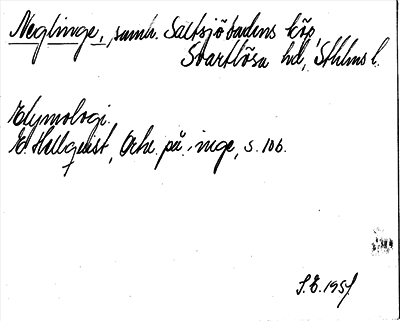 Neglinge, samh. Saltsjöbadens köp
Svartlösa hd, Sthlms l.
Etymologi.
E. Hellquist, Ortn. på -inge, s. 106.
S.E. 1951